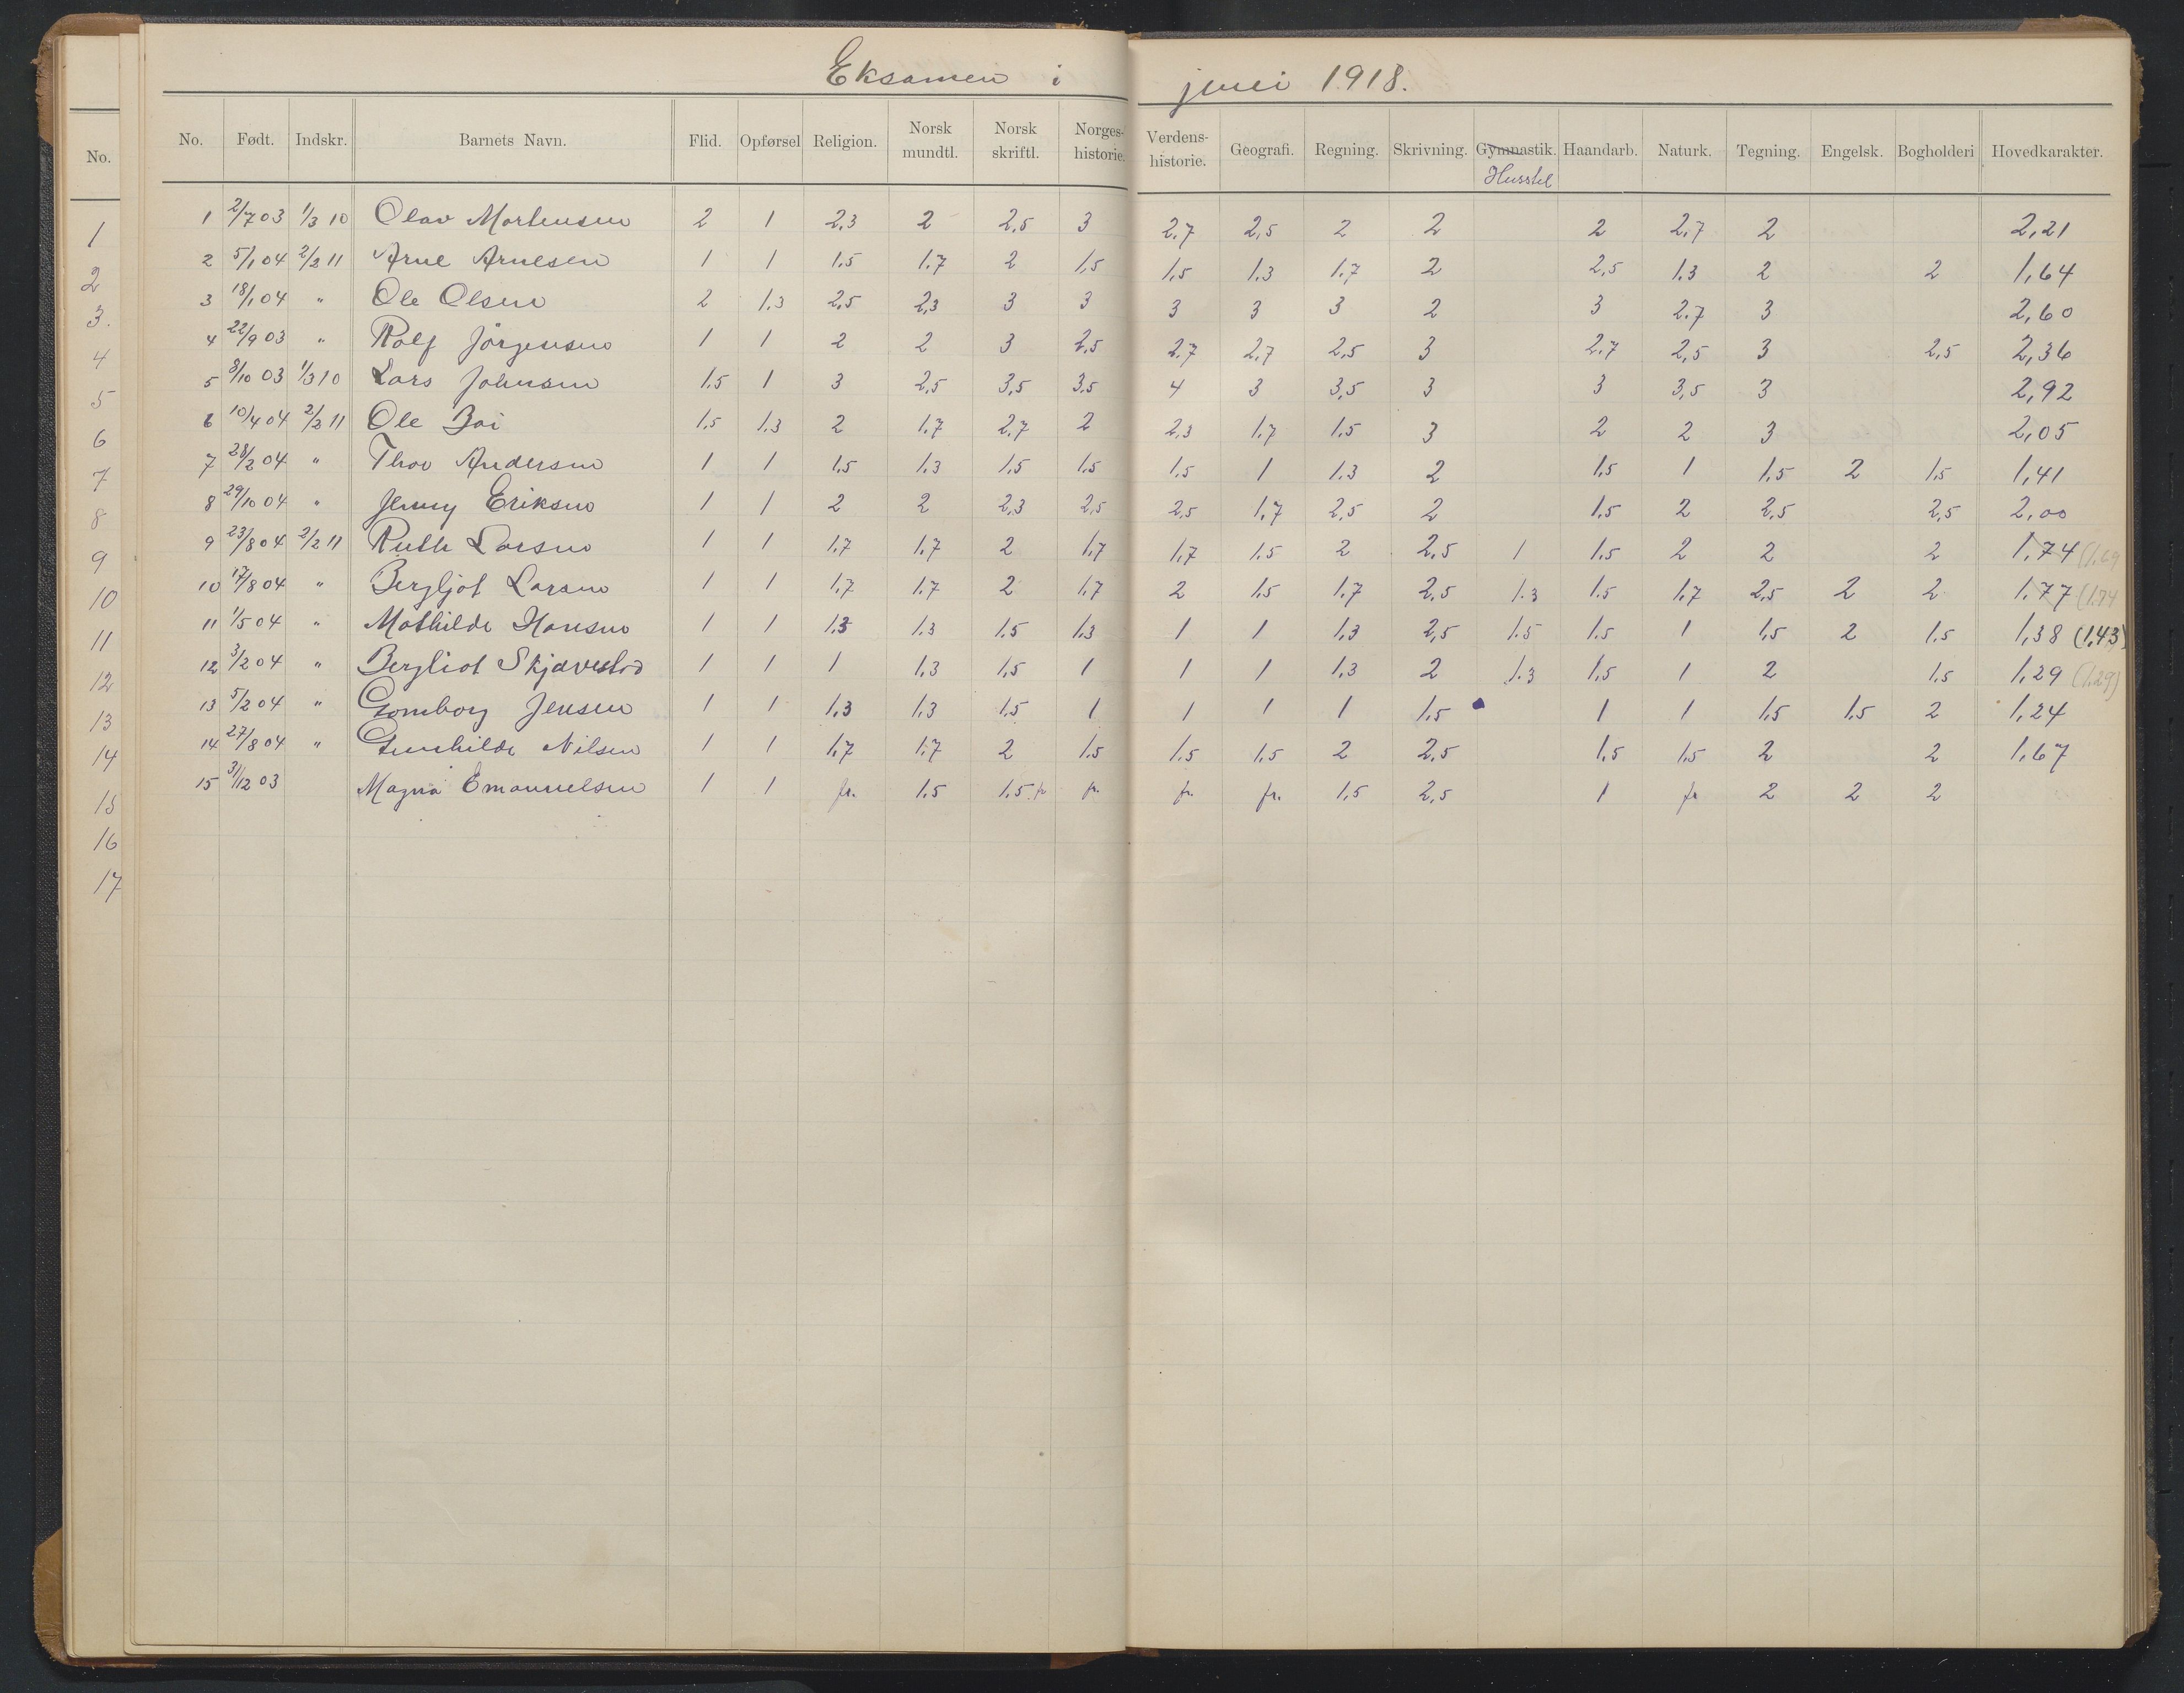 Eksamen i juni 1918.
No. Født. Indskr. Barnets Navn. Flid. Opførsel Religion. Norsk mundtl. Norsk skriftl. Norges-historie. Verdens-historie. Geografi. Regning. Skrivning. Gymnastik. Haandarb. Naturk. Tegning. Engelsk. Bogholderi Hovedkarakter.
Husstel
1 2/7 03 1/3 10 Olav Mortensen 2 1 2,3 2 2,5 3 2,7 2,5 2 2 2 2,7 2 2,21
2 5/1 04 2/2 11 Arne Arnesen 1 1 1,5 1,7 2 1,5 1,5 1,3 1,7 2 2,5 1,3 2 2 1,64
3 18/1 04 " Ole Olsen 2 1,3 2,5 2,3 3 3 3 3 3 2 3 2,7 3 2,60
4 22/9 03 " Rolf Jörgensen 1 1 2 2 3 2,5 2,7 2,7 2,5 3 2,7 2,5 3 2,5 2,36
5 8/10 03 1/3 10 Lars Johnsen 1,5 1 3 2,5 3,5 3,5 4 3 3,5 3 3 3,5 3 2,92
6 10/4 04 2/2 11 Ole Boi 1,5 1,3 2 1,7 2,7 2 2,3 1,7 1,5 3 2 2 3 2,05
7 28/2 04 " Thor Andersen 1 1 1,5 1,3 1,5 1,5 1,5 1 1,3 2 1,5 1 1,5 2 1,5 1,41
8 29/10 04 " Jenny Eriksen 1 1 2 2 2,3 2,5 2,5 1,7 2,5 2 1,5 2 2,5 2,5 2,00
9 23/8 04 2/2 11 Ruth Larsen 1 1 1,7 1,7 2 1,7 1,7 1,5 2 2,5 1 1,5 2 2 2 1,74 (1,69
10 17/8 04 " Bergljot Larsen 1 1 1,7 1,7 2 1,7 2 1,5 1,7 2,5 1,3 1,5 1,7 2,5 2 2 1,77 (1,74
11 1/5 04 " Mathilde Hansen 1 1 1,3 1,3 1,5 1,3 1 1 1,3 2,5 1,5 1,5 1 1,5 2 1,5 1,38 (1,43)
12 3/2 04 " Bergliot Skjævestad 1 1 1 1,3 1,5 1 1 1 1,3 2 1,3 1,5 1 2 1,5 1,29 (1,29)
13 5/2 04 " Gomborg Jensen 1 1 1,3 1,3 1,5 1 1 1 1 1,5 1 1 1,5 1,5 2 1,24
14 27/8 04 " Gunhilde Nilsen 1 1 1,7 1,7 2 1,5 1,5 1,5 2 2,5 1,5 1,5 2 2 1,67
15 31/12 03 Magna Emanuelsen 1 1 fr. 1,5 1,5 fr fr. fr. fr. 1,5 2,5 1 fr 2 2 2
No.
1
2
3.
4
5
6
7
8
9
10
11
12
13
14
15
16
17